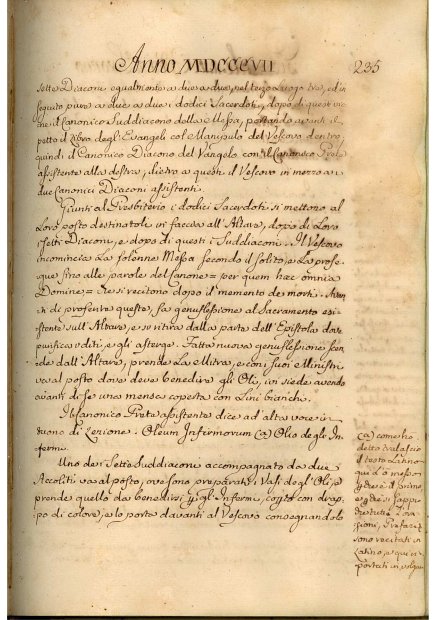 Anno MDCCCVII 235
Sette Diaconi egualmente a due a due, nel terzo luogo tre, ed in
seguito pure a due a due i dodici Sacerdoti, dopo di questi vie
ne il Canonico Suddiacono della Messa, portando avanti il
petto il Libro degli Evangeli col Manipulo del Vescovo dentro,
quindi il Canonico Diacono del Vangelo, con il Canonico Prete
assistente alla destra, dietro a questi il Vescovo in mezzo a i
due Canonici Diaconi assistenti.
Giunti al Presbiterio i dodici Sacerdoti si mettono al
Loro posto destinatole in faccia all'Altare, dopo di Loro
i Setti Diaconi, e dopo di questi i Suddiaconi. Il Vescovo
incomincia La solenne Messa secondo il solito, e La prose-
gue sino alle parole del Canone = per quem haec omnia
Domine = che si recitono dopo il memento de morti. Avan
ti di proferire queste, fa genuflessione al Sacramento esi-
stente sull'Altare, e si ritira dalla parte dell'Epistola dove
purifica i diti, e gli asterge. Fatta nuova genuflessione scen
de dall'Altare, prende La Mitra, e con i suoi Ministri
va al posto dove deve benedire gli Oli, in siede avendo
avanti di se una mensa coperta con Lini bianchi.
Il Canonico Prete assistente dice ad alta voce in
tuono di Lezione. Oleum Infirmorum (a) Olio degli In-
fermi.
Uno de Sette Suddiaconi accompagnato da due
Accoliti va al posto, ove sono preparati i Vasi degl'Oli, e
prende quello da benedirsi per gl'Infermi, coperto con drap-
po di colore, e lo porta davanti al Vescovo consegnandolo
(a) come ho
detto tralascio
il testo Latino
qui L'ò messo
per essere il primo,
e perche si sappi
che tutte L'ora-
zioni, Prefazj
sono recitati in
Latino, e qui ri-
portati in volgare